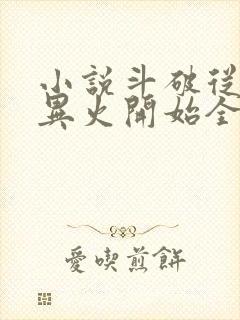 小説斗破從
異火開始全
愛喫煎餅